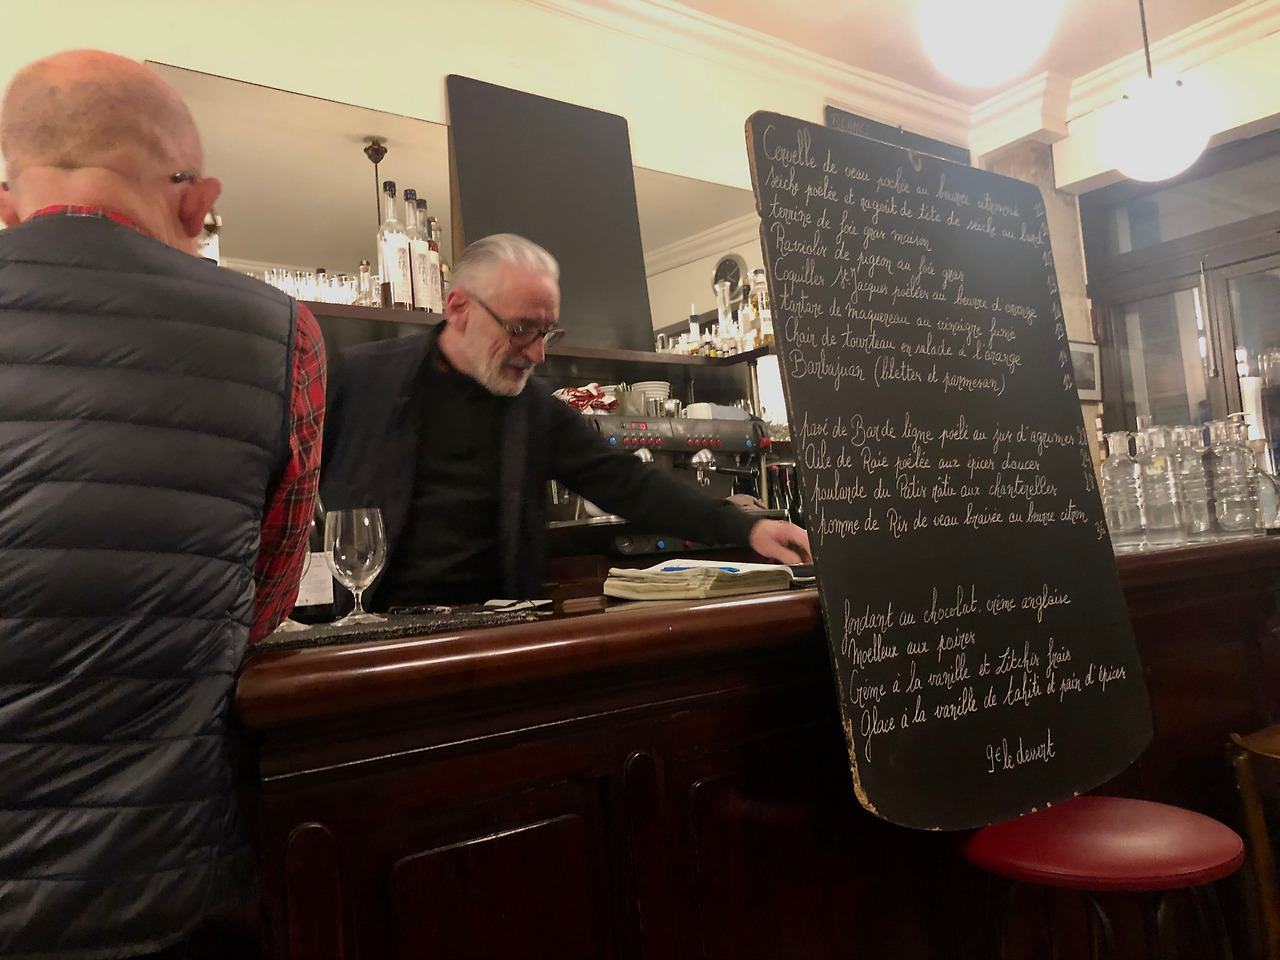 Cervelle de veau pochée au beurre citronné
Seiche poêlée et ragoût de tête de seiche au
terrine de foie gras maison
Raviolis de pigeon au foie gras
Coquilles St Jacques poêlées au beurre d'orange
tartare de maquereau au vinaigre fumé
Chair de tourteau en salade à l'orange
Barbajuan (blettes et parmesan)
pavé de Bar de ligne poêlé au jus d'agrumes
Aile de Raie poêlée aux épices douces
poularde du Patis rotie aux chanterelles
pomme de Ris de veau braisée au beurre citron 36
fondant au chocolat, crème anglaise
Moelleux aux poires
Crème à la vanille et Litchis frais
Glace à la vanille de tahiti et pain d'épices
9€ le dessert